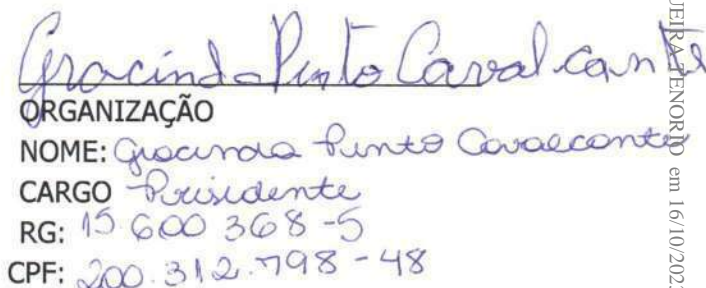 Gracinda Pinto Cavalcante
ORGANIZAÇÃO
NOME: Gracinda Pinto Cavalcante
CARGO Presidente
RG: 15.600 368-5
CPF: 200.312.798-48
UEIRA TENORIO em 16/10/202